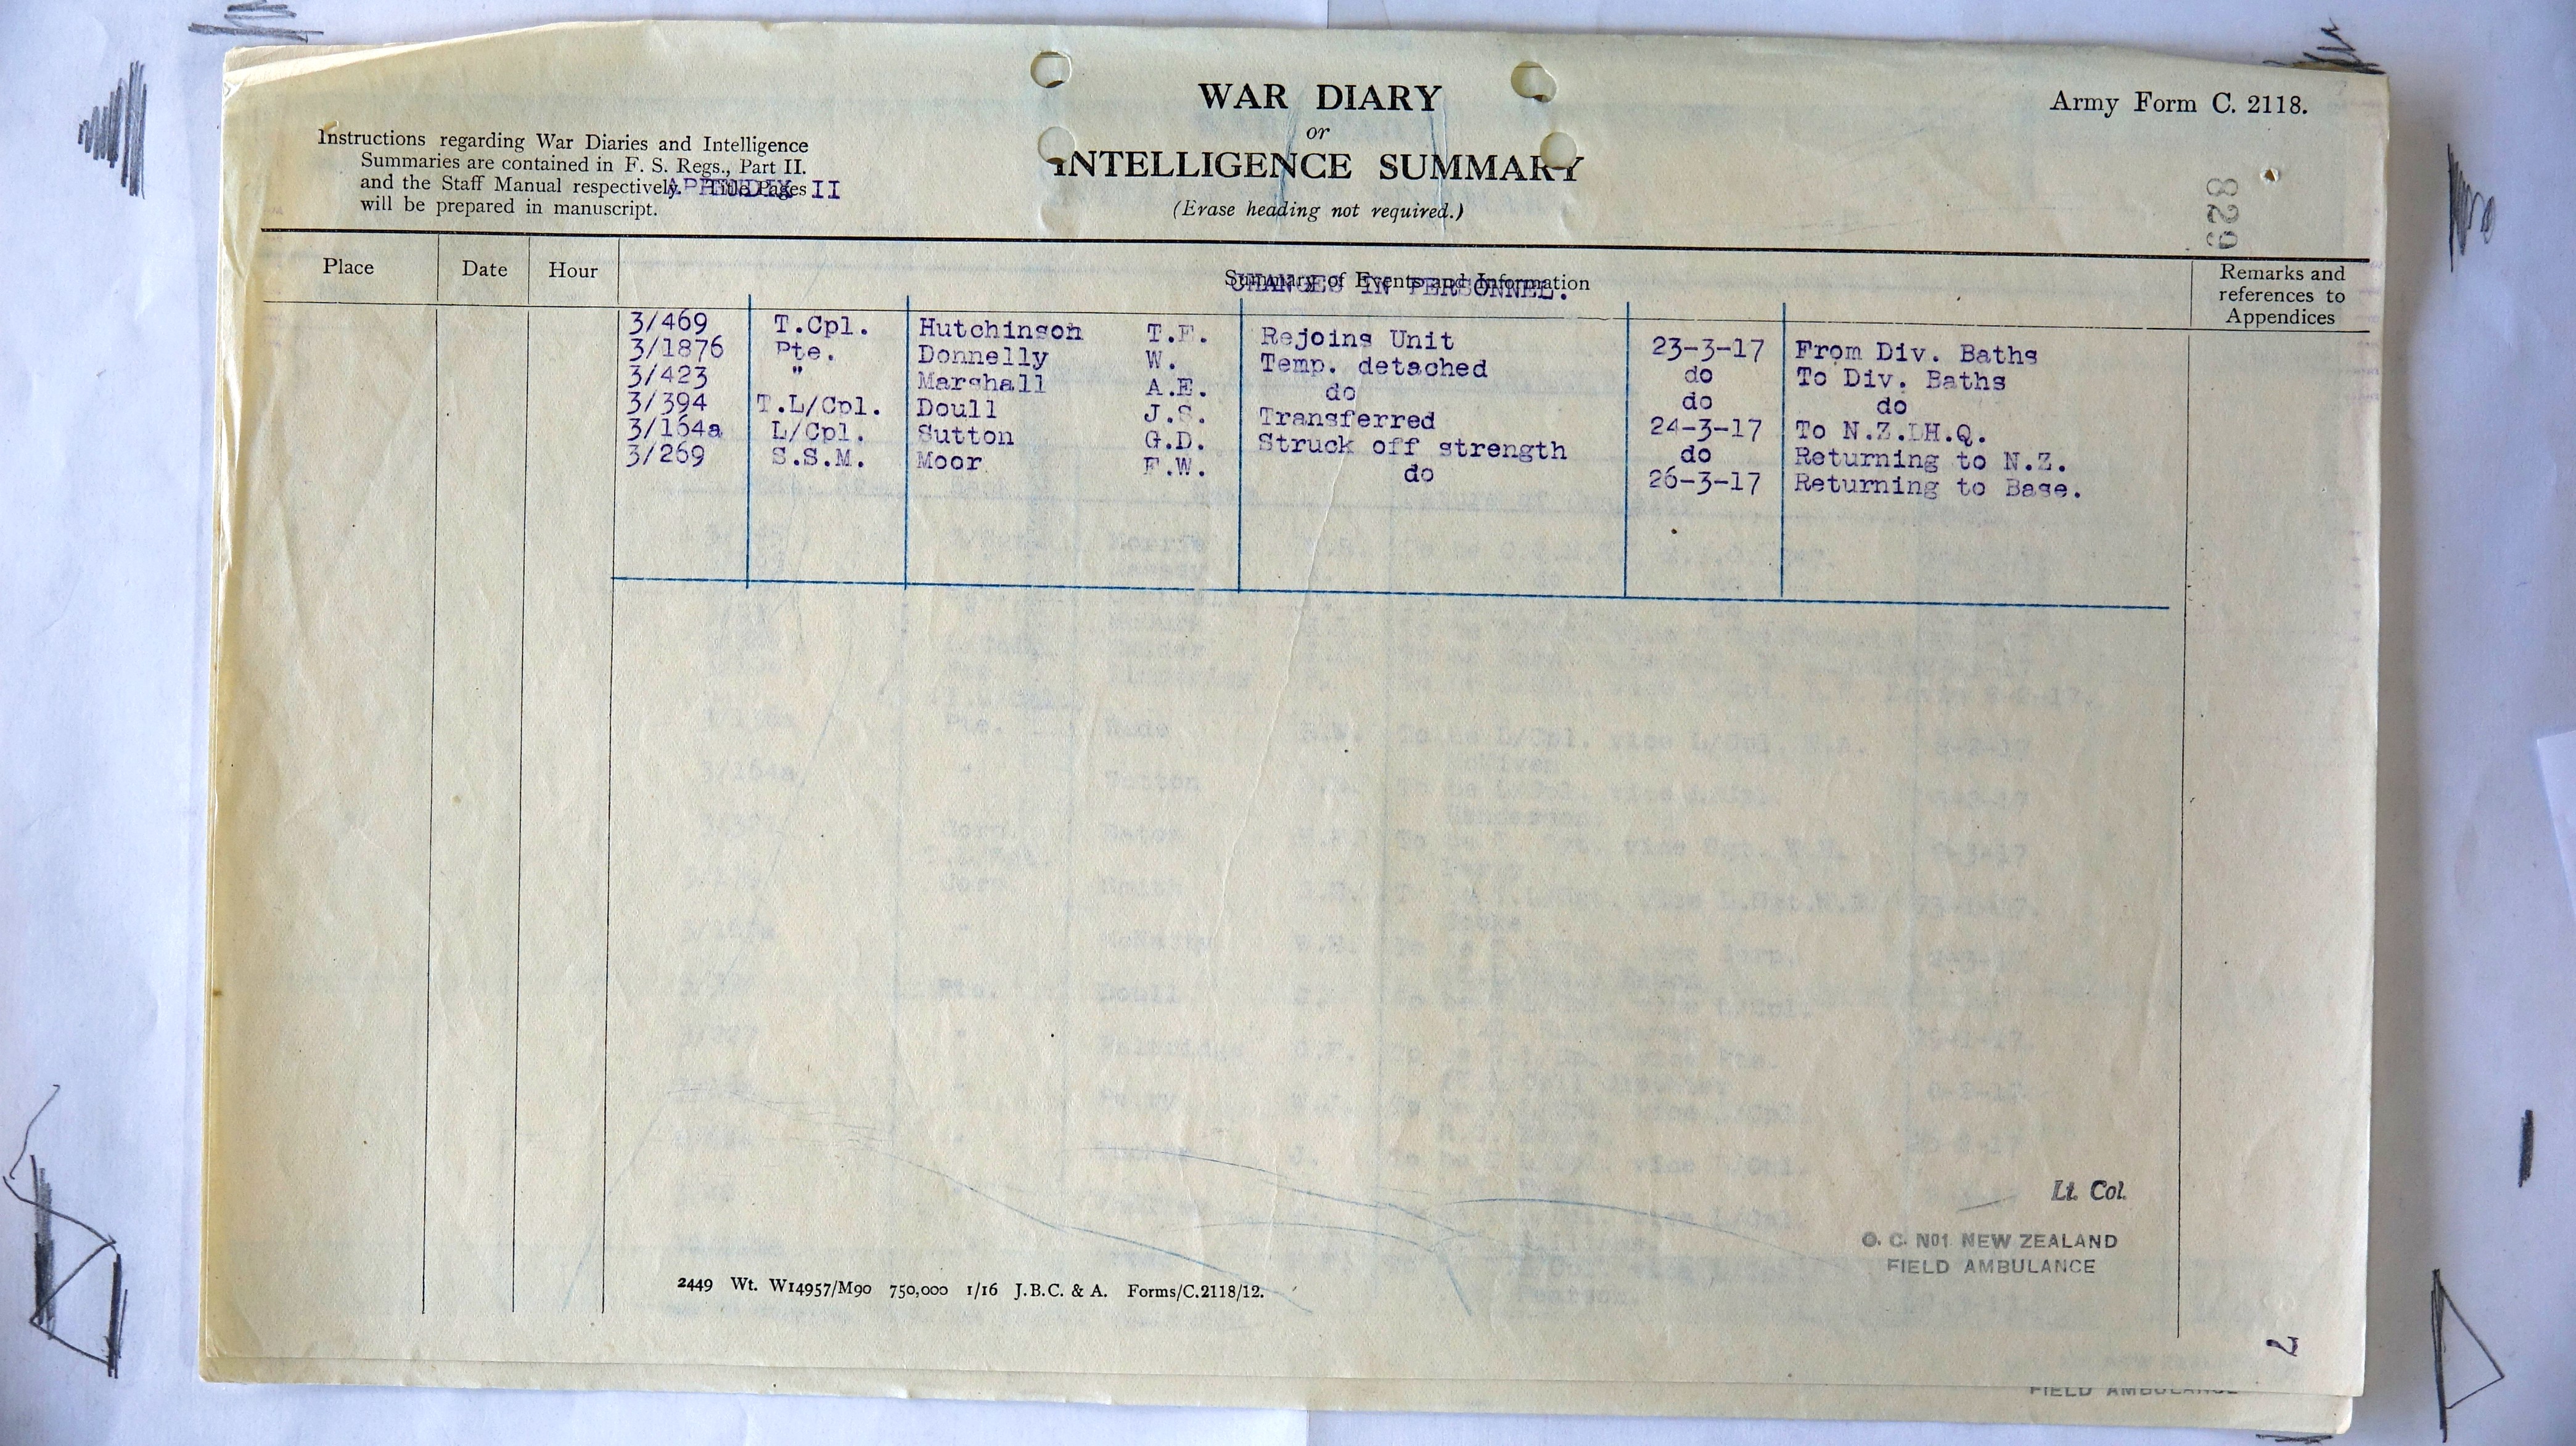 WAR DIARY
or
INTELLIGENCE SUMMARY
(Erase heading not required.)
Army Form C. 2118.
Instructions regarding War Diaries and Intelligence
Summaries are contained in F. S. Regs., Part II.
and the Staff Manual respectively. Title Pages
will be prepared in manuscript.
APPENDIX II
829
Place Date Hour Summary of Events and Information Remarks and references to Appendices
CHANGES IN PERSONNEL.
3/469 T.Cpl. Hutchinson T.F. Rejoins Unit 23-3-17 From Div. Baths
3/1876 Pte. Donnelly W. Temp. detached do To Div. Baths
3/423 " Marshall A.E. do do do
3/394 T.L/Cpl. Doull J.S. Transferred 24-3-17 To N.Z.DH.Q.
3/164a L/Cpl. Sutton G.D. Struck off strength do Returning to N.Z.
3/269 S.S.M. Moor F.W. do 26-3-17 Returning to Base.
Lt. Col.
O. C. No1 NEW ZEALAND
FIELD AMBULANCE
2449 Wt. W14957/M90 750,000 1/16 J.B.C. & A. Forms/C.2118/12.
7
FIELD AMBULANCE